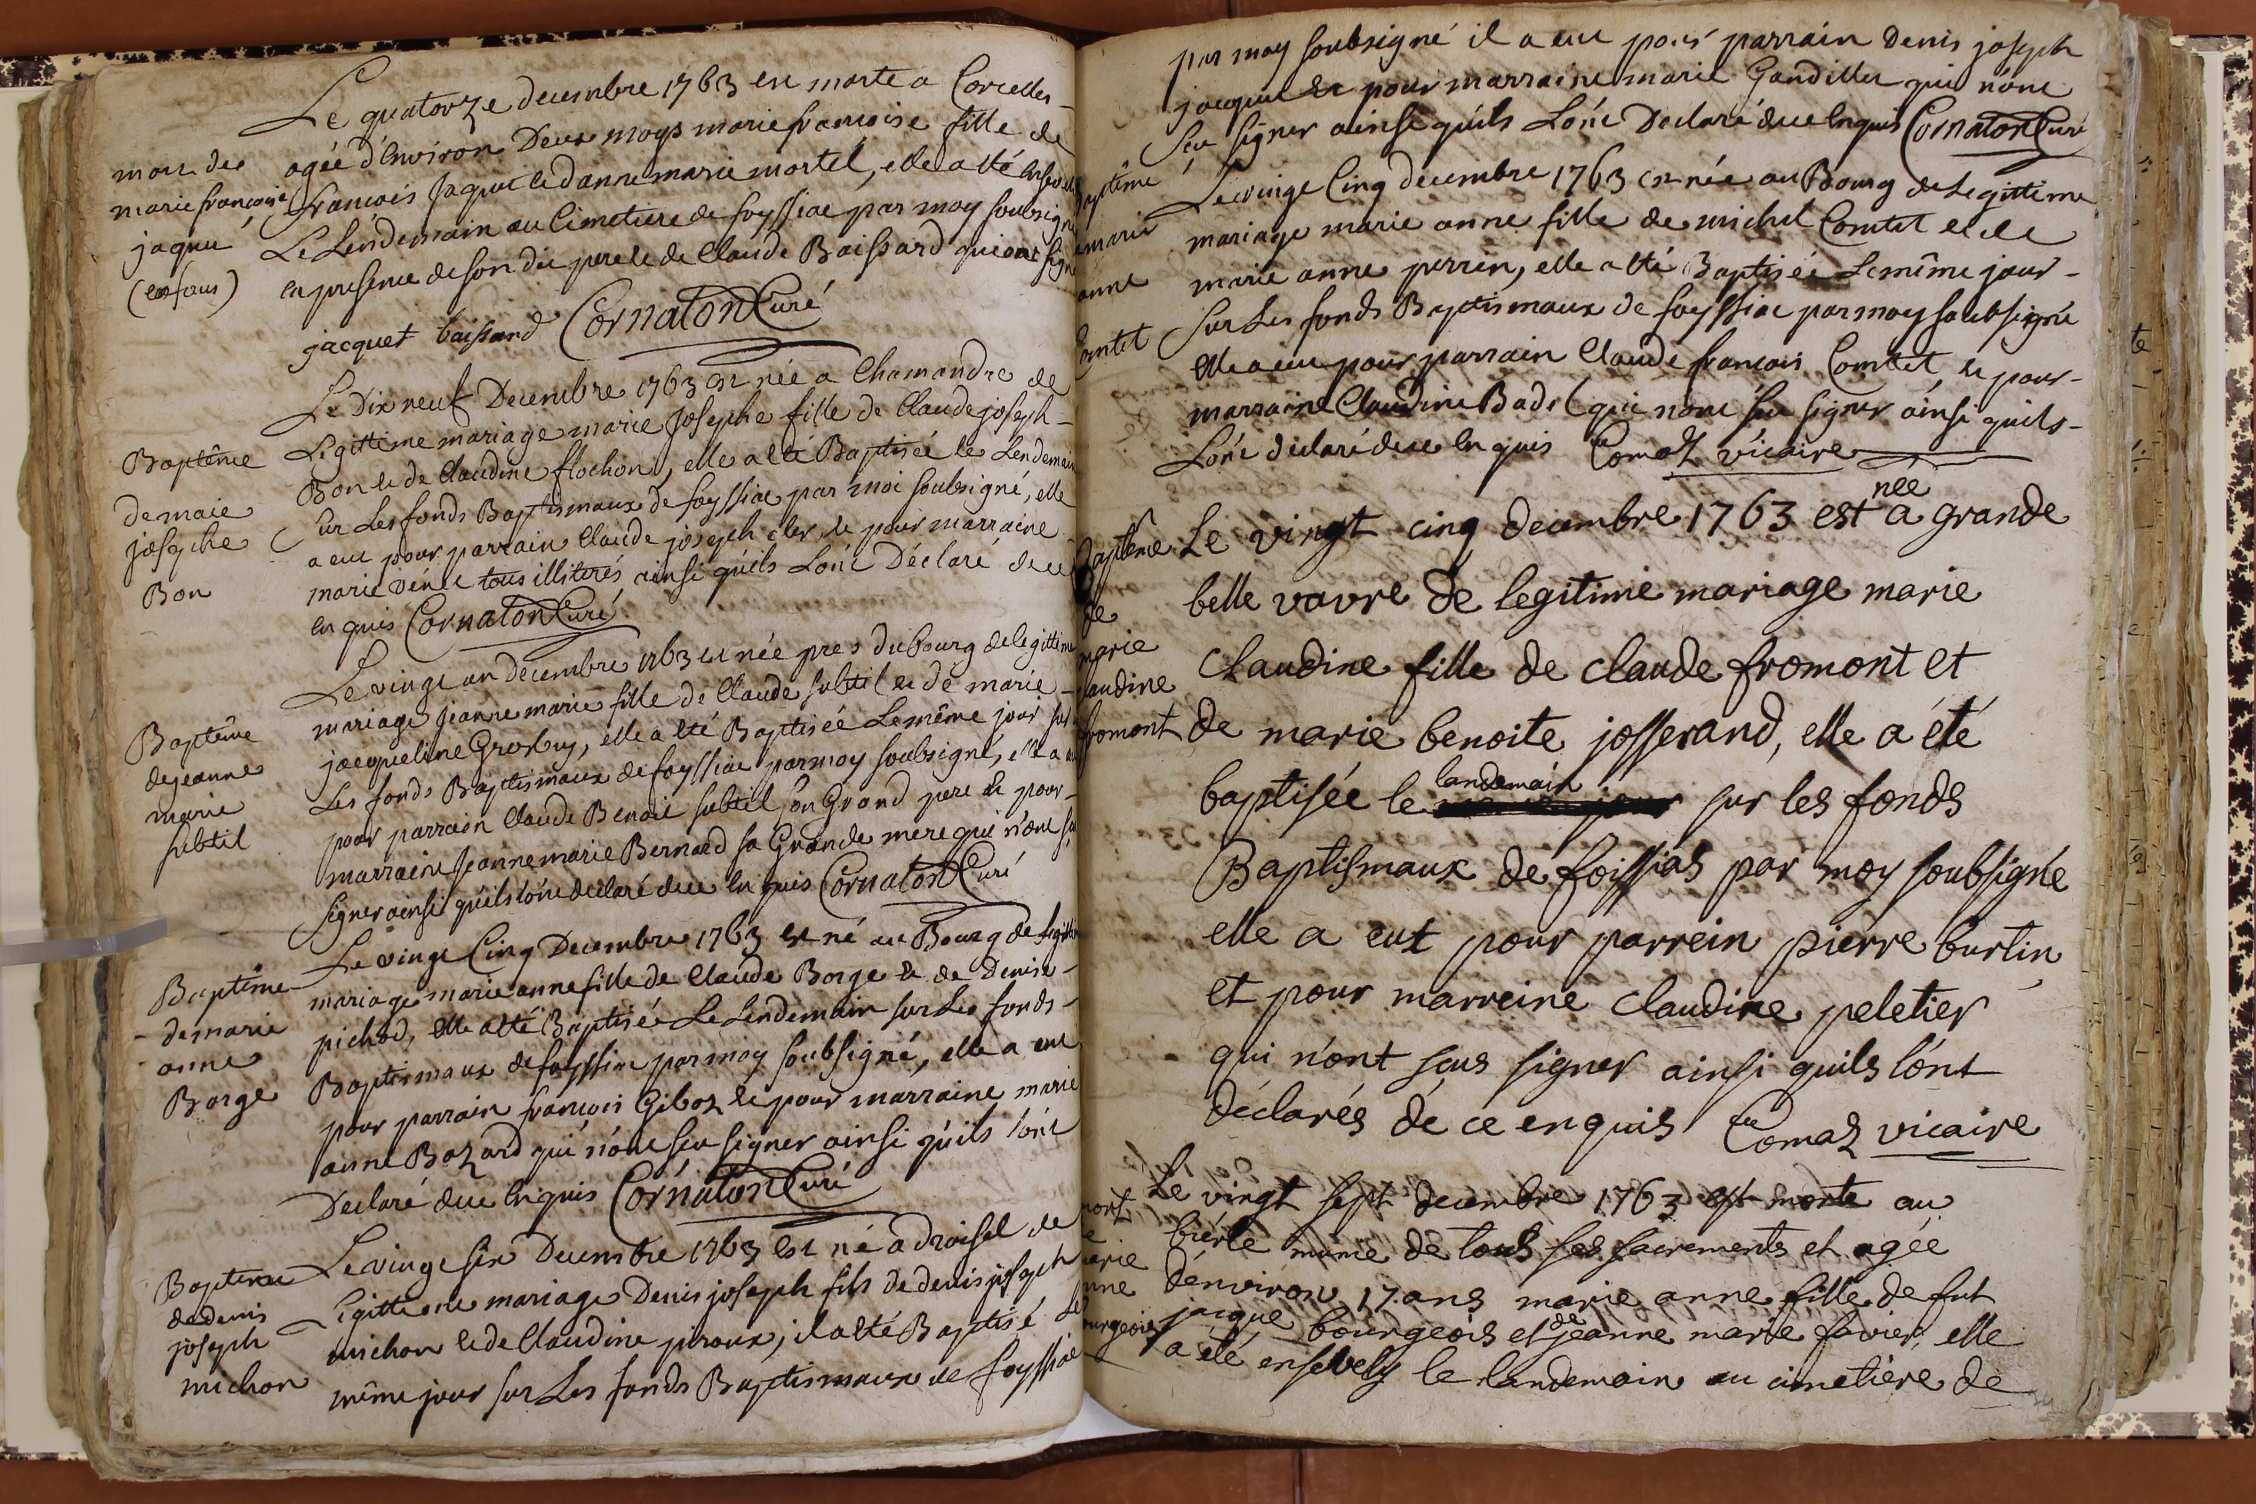 Le quatorze decembre 1763 est morte a Corcelles -
mort de
agée d'Environ Deux moys marie francoise fille de
marie francoise
francois Jaquet et d'anne marie mortel, elle a été Enseve
jaquet
Le Lendemain au Cimetiere de foyssiat par moy soubsigné
(enfans)
en presence de son dit pere et de Claude Baissard qui ont signé
jacquet baissard Cornaton Curé
Le Dix neuf Decembre 1763 est née a Chamandre de
Legittime mariage marie Josephe fille de Claude joseph -
Baptême
Bon et de Claudine flochon, elle a été Baptisée le Lendemain
de maie
sur Les fonds Baptismaux de foyssiat par moi soubsigné, elle
josephe
a eut pour parrain Claude joseph cler et pour marraine
Bon
marie véne tous illiterés ainsi qu'ils L'ónt Déclaré de ce
en quis Cornaton Curé
Le vingt un decembre 1763 est née pres du bourg de legittime
mariage jeanne marie fille de Claude subtil et de marie -
Baptême
jacqueline Grosbuy, elle a été Baptisée Le même jour sur
de jeanne
Les fonds Baptismaux de foyssiat par moy soubsigné, elle a eu
marie
pour parrain Claude Benoit subtil son Grand pere et pour -
subtil
marraine Jeanne marie Bernard sa Grande mere qui n'ont sçu
signer ainsi qu'ils l'ónt declaré de ce en quis Cornaton Curé
Le vingt Cinq Decembre 1763 est né au Bourg de Legittime
Baptême
mariage marie anne fille de Claude Borge et de Denise -
- de marie
pichod, elle a été Baptisée Le Lendemain sur Les fonds -
anne
Baptismaux de foyssiat par moy soubsigné, elle a eut
Borge
pour parrain francois Giboz et pour marraine marie
anne Bozard qui n'ont sçu signer ainsi qu'ils l'ónt
Declaré de ce En quis Cornaton Curé
Le vingt six Decembre 1763 est né a droisel de
Baptême
Legittime mariage Denis joseph fils de denis joseph
de denis
michon et de Claudine piroux, il a été Baptisé Le
joseph
même jour sur Les fonds Baptismaux de foyssiat
michon
par moy soubsigné il a eut pour parrain denis joseph
jacquet et pour marraine marie Gandillet qui n'ónt
sçu signer ainsi qu'ils L'ónt Declaré de ce Enquis Cornaton Curé
Baptême
Le vingt Cinq decembre 1763 est née au Bourg de Legittime
marie
mariage marie anne fille de michel Comtet et de
anne
marie anne perrin, elle a été Baptisée Le même jour -
Comtet
sur Les fonds Baptismaux de foyssiat par moy soubsigné
elle a eut pour parrain Claude francois Comtet et pour -
marraine Claudine Badel qui n'ont sçu signer ainsi qu'ils -
L'ónt déclaré de ce En quis Comaz vicaire
Baptême Le vingt cinq decembre 1763 est née a grande
de
belle vavre de legitime mariage marie
marie
claudine fille de claude fromont et
claudine
fromont
de marie benoite josserand, elle a été
baptisée le landemain sur les fonds
Baptismaux de foissias par moy soubsigné
elle a eut pour parrein pierre burtin
et pour marreine claudine peletier
qui n'ont sçus signer ainsi quils l'ónt
déclarés de ce enquis Comaz vicaire
mort
Le vingt sept decembre 1763 est morte au
de
biérle munie de tous ses sacrements et agée
marie
anne
d'environ 17 ans marie anne fille de fut
bourgeois
jacque bourgeois et de jeanne marie favier, elle
a été ensevely le landemain au cimetière de